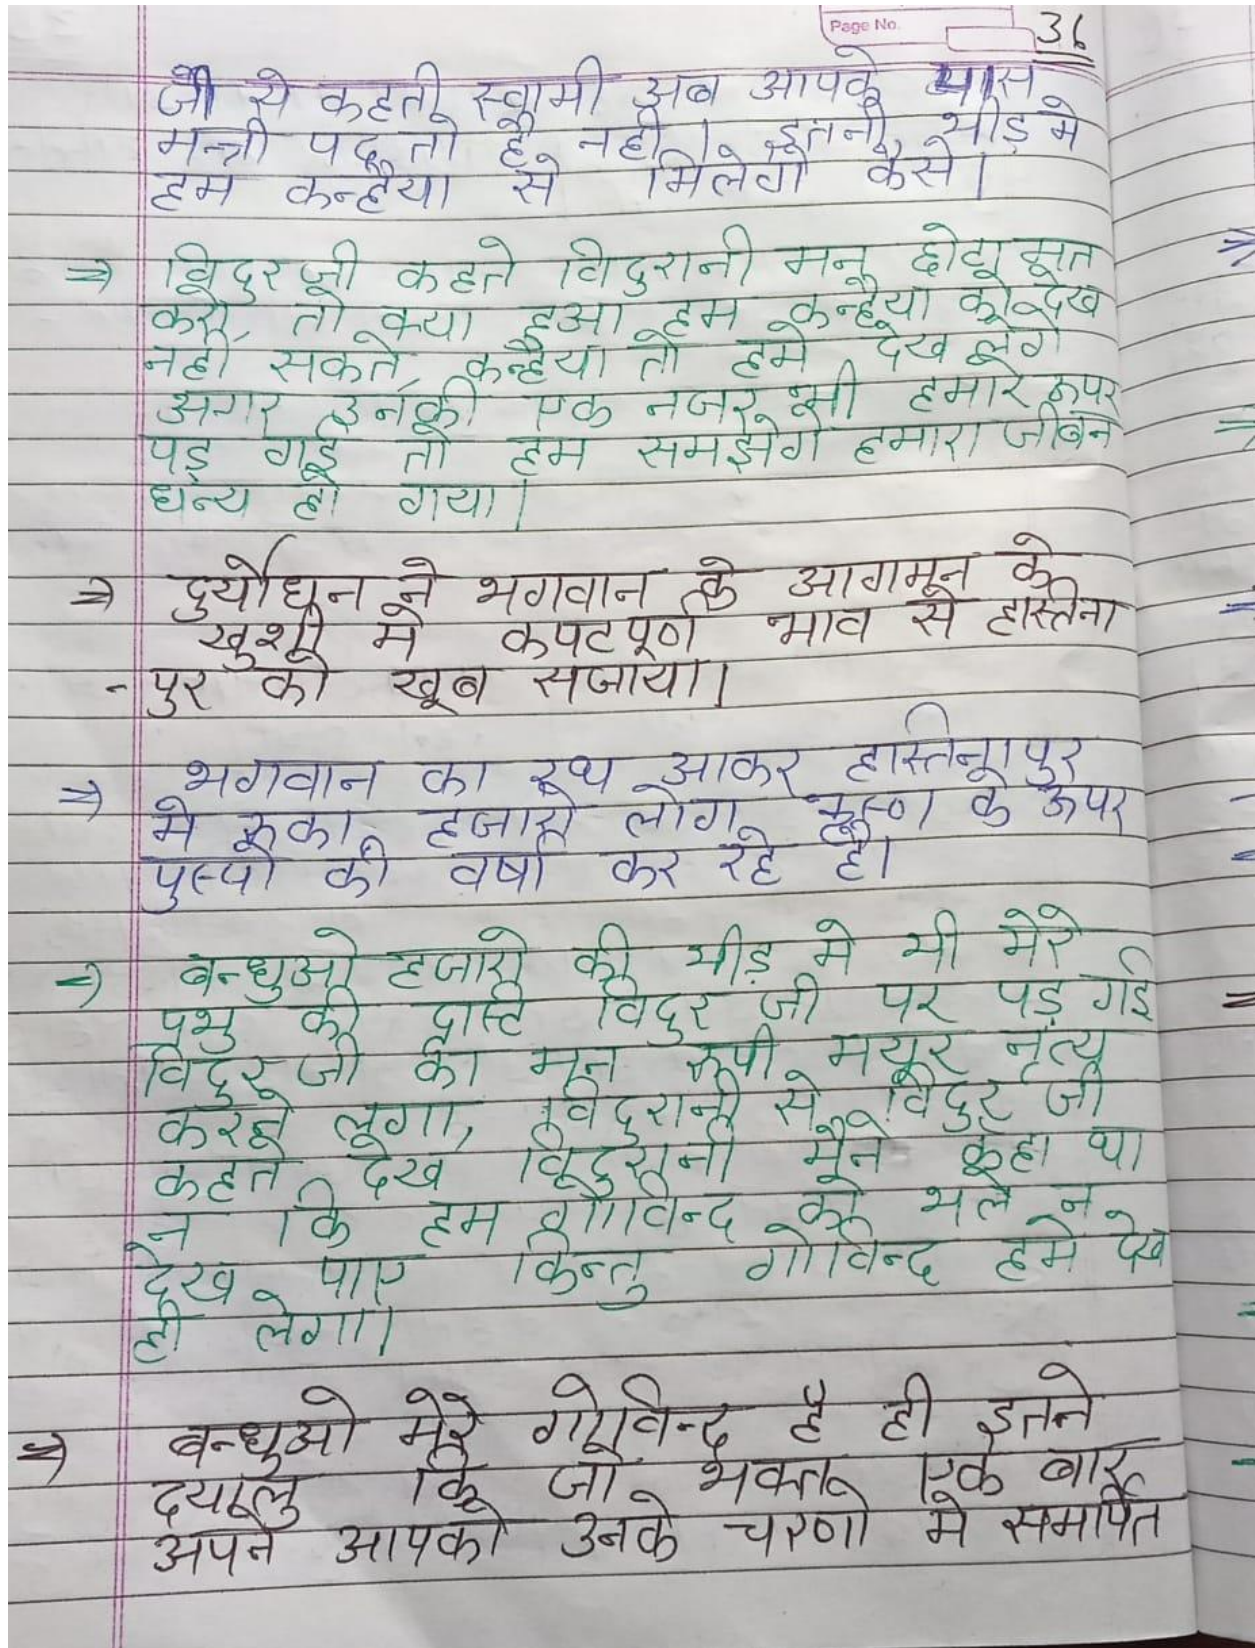 Page No.
36
जी से कहती स्वामी अब आपके पास
मन्त्री पद तो है नही। इतनी भीड़ मे
हम कन्हैया से मिलेगे कैसे।
⇒ विदुर जी कहते विदुरानी मन छोटा मत
करो, तो क्या हुआ हम कन्हैया को देख
नही सकते, कन्हैया तो हमे देख लेगे
अगर उनकी एक नजर भी हमारे ऊपर
पड़ गई तो हम समझेगे हमारा जीवन
धन्य हो गया।
⇒ दुर्योधन ने भगवान के आगमन के
खुशी मे कपटपूर्ण भाव से हस्तिना
- पुर को खूब सजाया।
⇒ भगवान का रथ आकर हस्तिनापुर
मे रुका, हजारो लोग कृष्ण के ऊपर
पुस्पो की वर्षा कर रहे है।
⇒ बन्धुओ हजारो की भीड़ मे भी मेरे
प्रभु की द्रष्टि विदुर जी पर पड़ गई
विदुर जी का मन रूपी मयूर नृत्य
करने लगा, विदुरानी से विदुर जी
कहते देख विदुरानी मैने कहा था
न कि हम गोविन्द को भले न
देख पाए किन्तु गोविन्द हमे देख
ही लेगा।
⇒ बन्धुओ मेरे गोविन्द है ही इतने
दयालु कि जो भक्त एक बार
अपने आपको उनके चरणो मे समर्पित